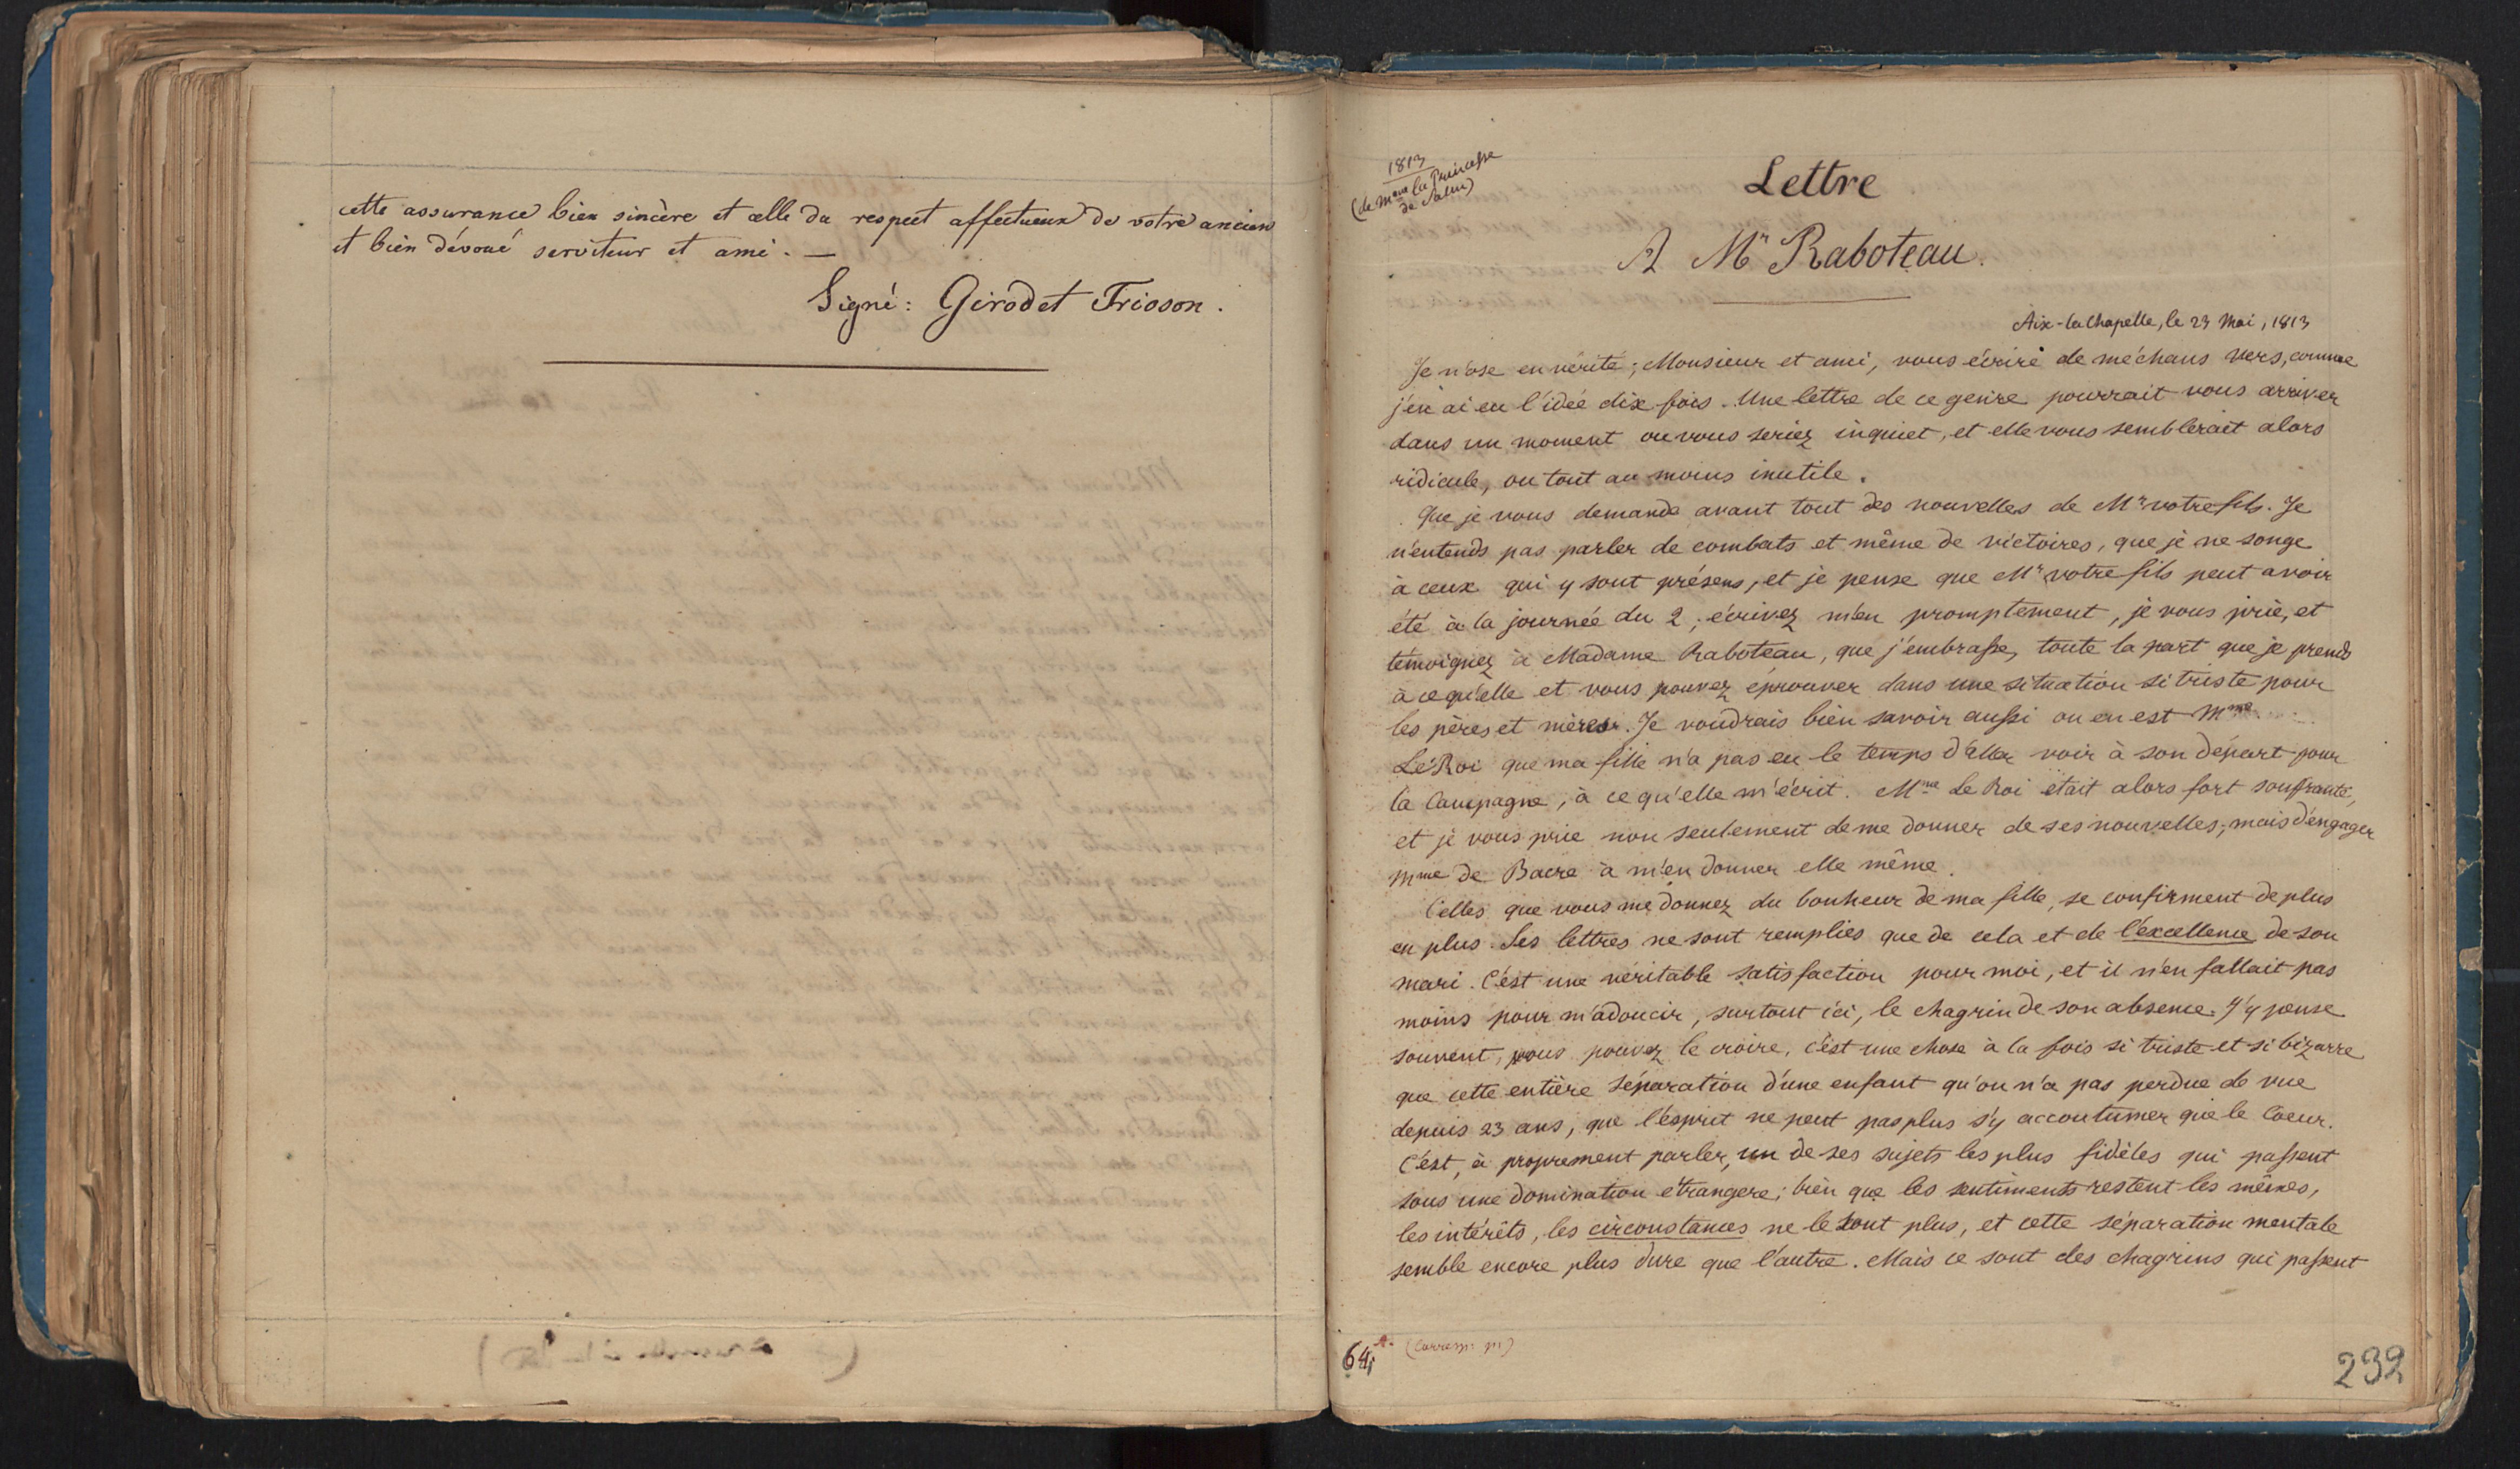 cette assurance bien sincère et celle du respect affectueux de votre ancien
et bien dévoué serviteur et ami. —
Signé: Girodet Trioson.
1813
(de Mme la Princesse
de Salm)
Lettre
A Mr Raboteau.
Aix-la Chapelle, le 23 Mai, 1813
Je n'ose en vérité; Monsieur et ami, vous écrire de méchans vers, comme
j'en ai eu l'idée dix fois. Une lettre de ce genre pourrait vous arriver
dans un moment ou vous seriez inquiet, et elle vous semblerait alors
ridicule, ou tout au moins inutile.
Que je vous demande avant tout des nouvelles de Mr votre fils. Je
n'entends pas parler de combats et même de victoires, que je ne songe
à ceux qui y sont présens, et je pense que Mr votre fils peut avoir
été à la journée du 2, écrivez m'en promptement, je vous prie, et
témoignez à Madame Raboteau, que j'embrasse, toute la part que je prends
à ce qu'elle et vous pouvez éprouver dans une situation si triste pour
les pères et mères. Je voudrais bien savoir aussi ou en est Mme
Le Roi que ma fille n'a pas eu le temps d'aller voir à son départ pour
la Campagne, à ce qu'elle m'écrit. Mme Le Roi était alors fort souffrante,
et je vous prie non seulement de me donner de ses nouvelles, mais d'engager
Mme de Bacre à m'en donner elle même.
Celles que vous me donnez du bonheur de ma fille, se confirment de plus
en plus. Ses lettres ne sont remplies que de cela et de l'excellence de son
mari. C'est une véritable satisfaction pour moi, et il n'en fallait pas
moins pour m'adoucir, surtout ici, le chagrin de son absence. J'y pense
souvent, vous pouvez le croire, c'est une chose à la fois si triste et si bizarre
que cette entière séparation d'une enfant qu'on n'a pas perdue de vue
depuis 23 ans, que l'esprit ne peut pas plus s'y accoutumer que le Coeur.
C'est, à proprement parler, un de ses sujets les plus fidèles qui passent
sous une domination étrangere; bien que les sentiments restent les mêmes,
les intérêts, les circonstances ne le sont plus, et cette séparation mentale
semble encore plus dure que l'autre. Mais ce sont des chagrins qui passent
64
232